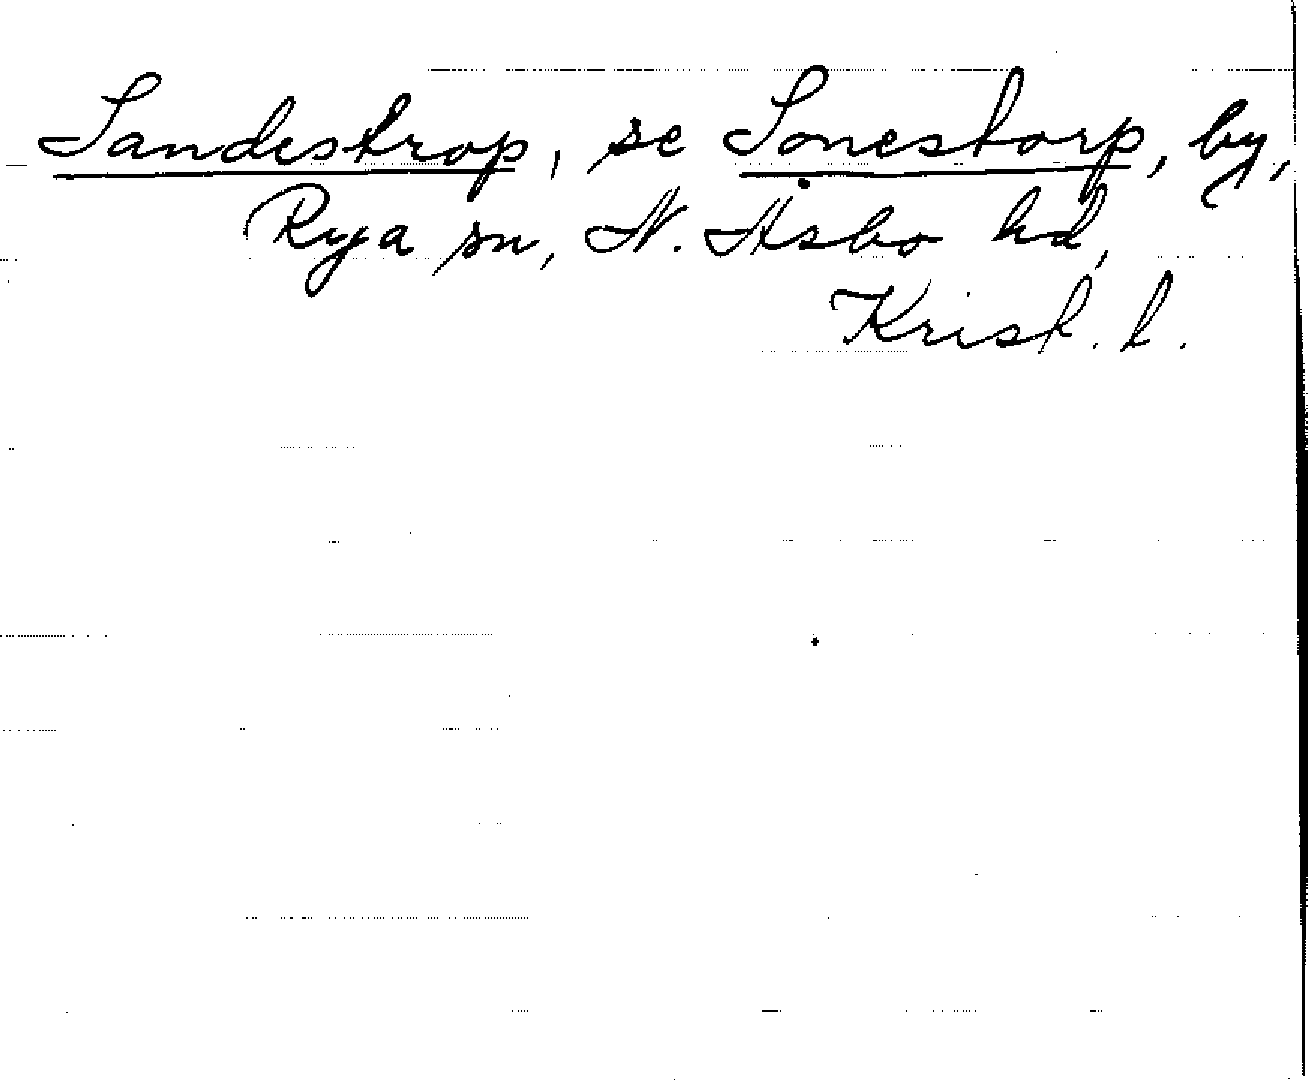 Sandestrop, se Sonestorp, by,
Rya sn, N. Åsbo hd,
Krist. l.